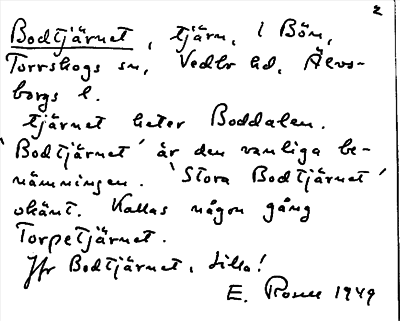 2
Bodtjärnet, tjärn, i Bön,
Torrskogs sn, Vedbo hd, Älvs-
borgs l.
tjärnet heter Boddalen.
'Bodtjärnet' är den vanliga be-
nämningen. 'Stora Bodtjärnet'
okänt. Kallas någon gång
Torpetjärnet.
Jfr Bodtjärnet, Lilla!
E. Rosell 1949